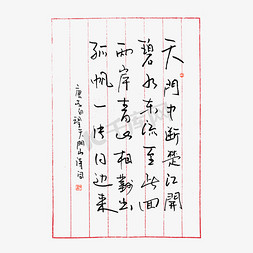 天門中断楚江開
碧水东流至此回
两岸青山相對出
孤帆一片日边来
唐李白望天門山诗